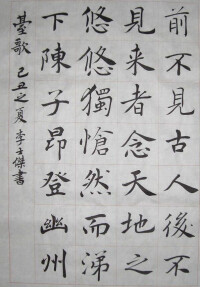 前不見古人後不
見来者念天地之
悠悠獨愴然而涕
下陳子昂登幽州
臺歌 己丑之夏 李士傑書